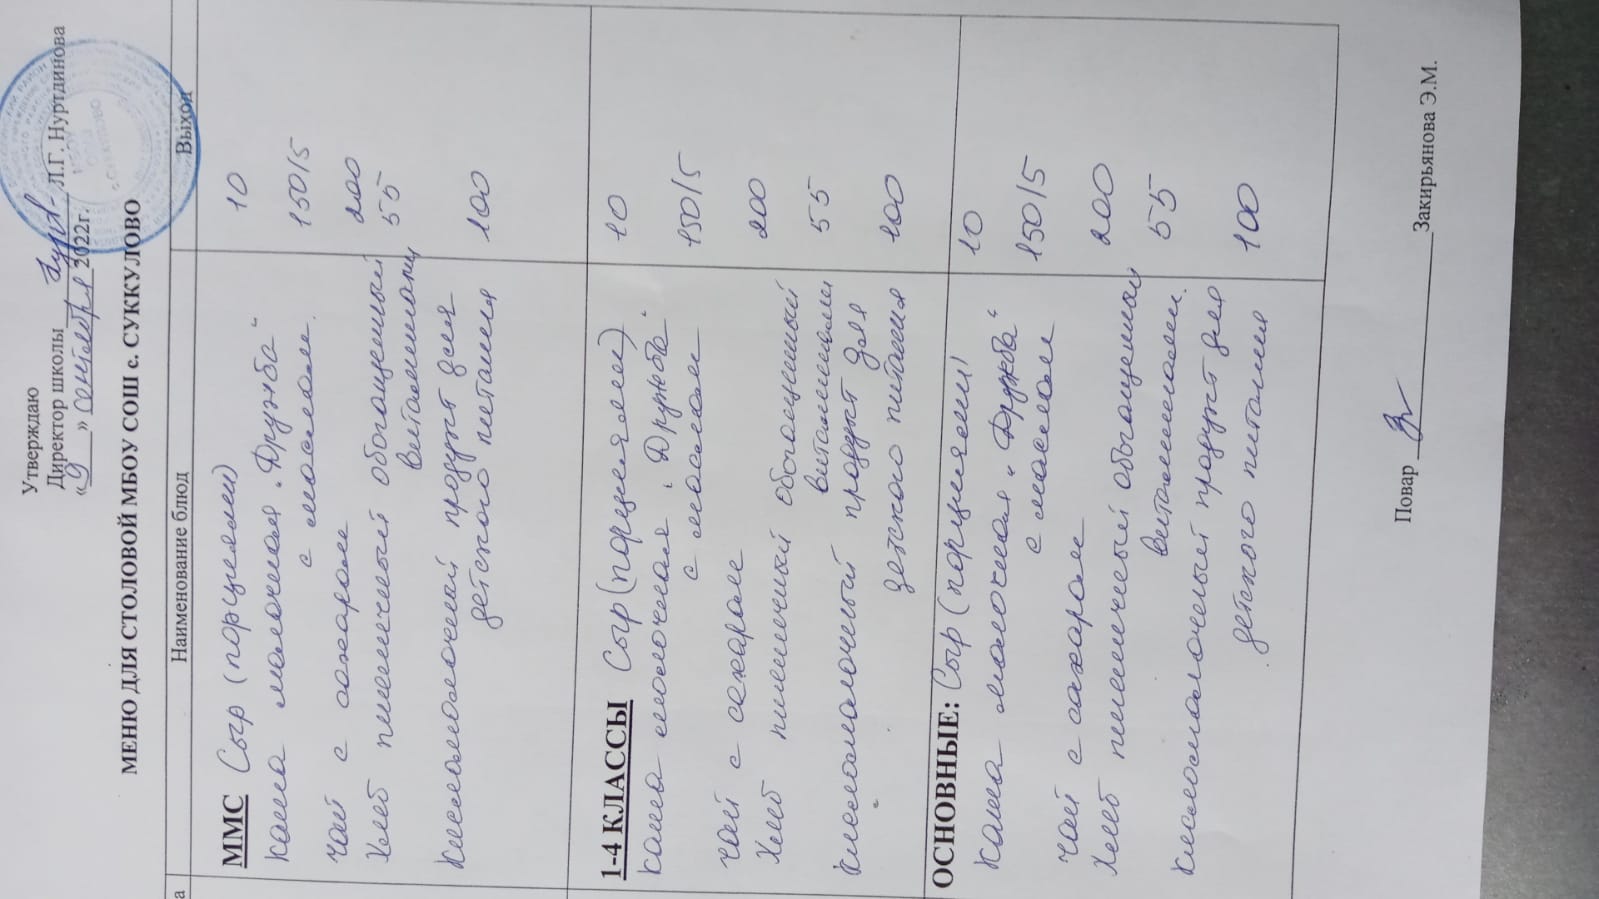 Утверждаю
Директор школы Л.Г. Нуртдинова
«9» сентября 2022г.
МЕНЮ ДЛЯ СТОЛОВОЙ МБОУ СОШ с. СУККУЛОВО
а Наименование блюд Выход
ММС Сыр (порциями) 10
Каша молочная „Дружба“
с маслом. 150/5
Чай с сахаром 200
Хлеб пшеничный обогащенный 55
витаминами
Кисломолочный продукт для
детского питания 100
1-4 КЛАССЫ Сыр (порциями) 10
Каша молочная „Дружба“
с маслом 150/5
Чай с сахаром 200
Хлеб пшеничный обогащенный
витаминами 55
Кисломолочный продукт для
детского питания 100
ОСНОВНЫЕ: Сыр (порциями) 10
Каша молочная „Дружба“
с маслом 150/5
Чай с сахаром 200
Хлеб пшеничный обогащенный
витаминами. 55
Кисломолочный продукт для
детского питания 100
Повар Закирьянова Э.М.